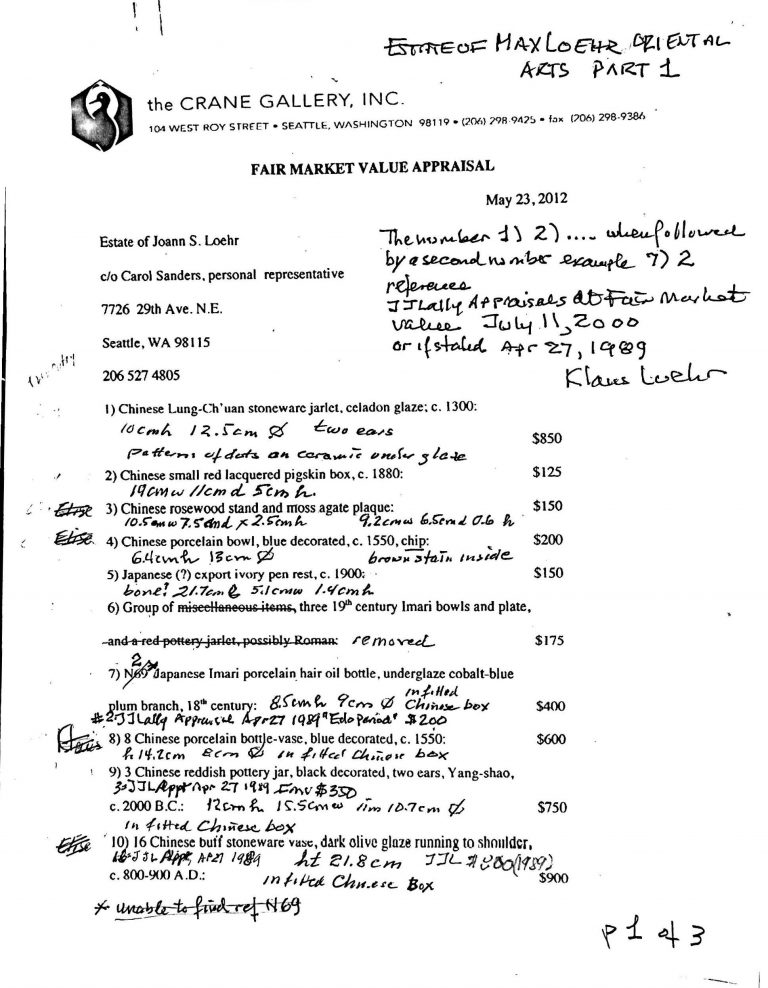 ESTATE OF MAX LOEHR ORIENTAL
ARTS PART 1
the CRANE GALLERY, INC.
104 WEST ROY STREET • SEATTLE, WASHINGTON 98119 • (206) 298-9425 • fax (206) 298-9386
FAIR MARKET VALUE APPRAISAL
May 23, 2012
Estate of Joann S. Loehr
c/o Carol Sanders, personal representative
7726 29th Ave. N.E.
Seattle, WA 98115
206 527 4805
The number 1) 2) .... when followed
by a second number example 7) 2
references
JJLally Appraisals at Fair Market
value July 11, 2000
or if stated Apr 27, 1989
Klaus Loehr
1) Chinese Lung-Ch'uan stoneware jarlet, celadon glaze; c. 1300:
10cmh 12.5cm Ø two ears
patterns of dots on ceramic under glaze
$850
2) Chinese small red lacquered pigskin box, c. 1880: $125
19cmw 11cmd 5cmh.
Elise 3) Chinese rosewood stand and moss agate plaque: $150
10.5cmw 7.5cmd x 2.5cmh 9.2cmw 6.5cmd 0.6 h
Elise 4) Chinese porcelain bowl, blue decorated, c. 1550, chip: $200
6.4cmh 13cm Ø brown stain inside
5) Japanese (?) export ivory pen rest, c. 1900: $150
bone? 21.7cm l 5.1cmw 1.4cmh
6) Group of miscellaneous items, three 19th century Imari bowls and plate,
and a red pottery jarlet, possibly Roman: removed $175
2
7) N69* Japanese Imari porcelain hair oil bottle, underglaze cobalt-blue
plum branch, 18th century: 8.5cmh 9cm Ø in fitted Chinese box $400
#2 JJLally Appraisal Apr 27 1989 "Edo Period" $200
Klaus 8) 8 Chinese porcelain bottle-vase, blue decorated, c. 1550: $600
h 14.2cm 8cm Ø in fitted Chinese box
9) 3 Chinese reddish pottery jar, black decorated, two ears, Yang-shao,
3 JJL Appr Apr 27 1989 FMV $350
c. 2000 B.C.: 12cmh 15.5cmw rim 10.7cm Ø $750
in fitted Chinese box
Elise 10) 16 Chinese buff stoneware vase, dark olive glaze running to shoulder,
16 JJL Appr, AP27 1989 ht 21.8cm JJL $800 (1989)
c. 800-900 A.D.: in fitted Chinese Box $900
* unable to find ref N69
p 1 of 3